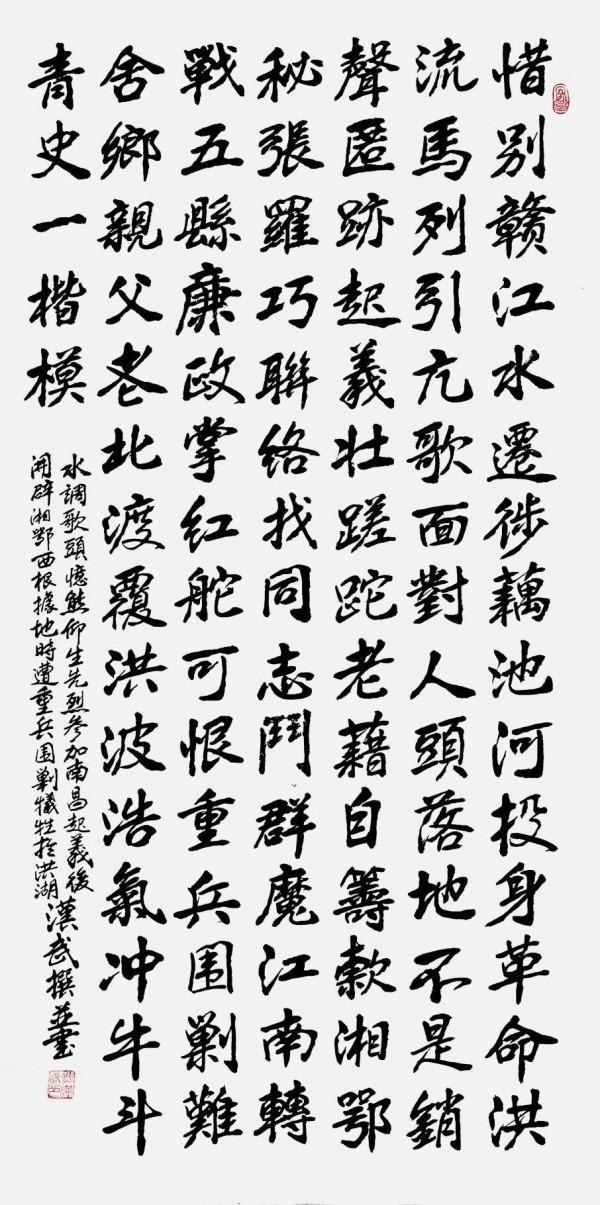 惜别赣江水遷徙藕池河投身革命洪
流馬列引亢歌面對人頭落地不是銷
聲匿跡起義壯蹉跎老藉自籌款湘鄂
秘張羅巧聯絡找同志鬥群魔江南轉
戰五縣廉政掌红舵可恨重兵围剿難
舍鄉親父老北渡覆洪波浩氣冲牛斗
青史一楷模
水調歌頭憶熊仰生先烈參加南昌起義後
开辟湘鄂西根據地時遭重兵围剿犧牲於洪湖漢武撰並書